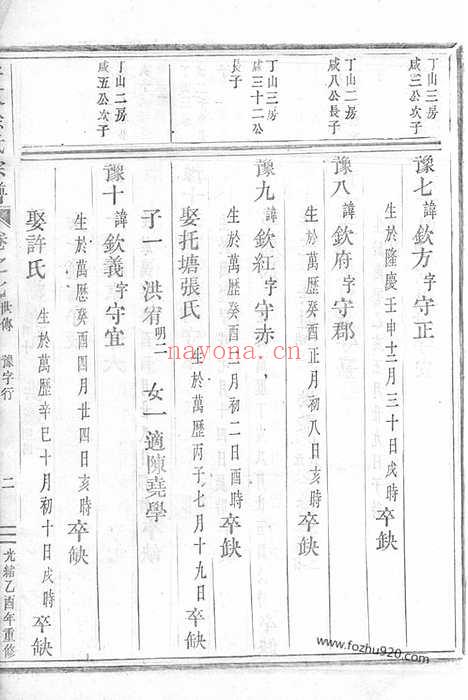 丁山三房
咸三公次子
豫七諱欽方字守正
生於隆慶壬申十二月三十日戌時卒缺
丁山二房
咸八公長子
豫八諱欽府字守郡
生於萬歷癸酉二月初八日亥時卒缺
丁山三房
咸三十二公
長子
豫九諱欽紅字守赤
生於萬歷癸酉二月初二日酉時卒缺
娶托塘張氏
生於萬歷丙子七月十九日卒缺
子一 洪宥明二 女一適陳堯學
丁山二房
咸五公次子
豫十諱欽義字守宜
生於萬歷癸酉四月廿四日亥時卒缺
娶許氏
生於萬歷辛巳十月初十日戌時卒缺
氏宗譜
卷之
世傳
豫字行
二
光緒乙酉年重修
nayona.cn
www.fozhu920.com